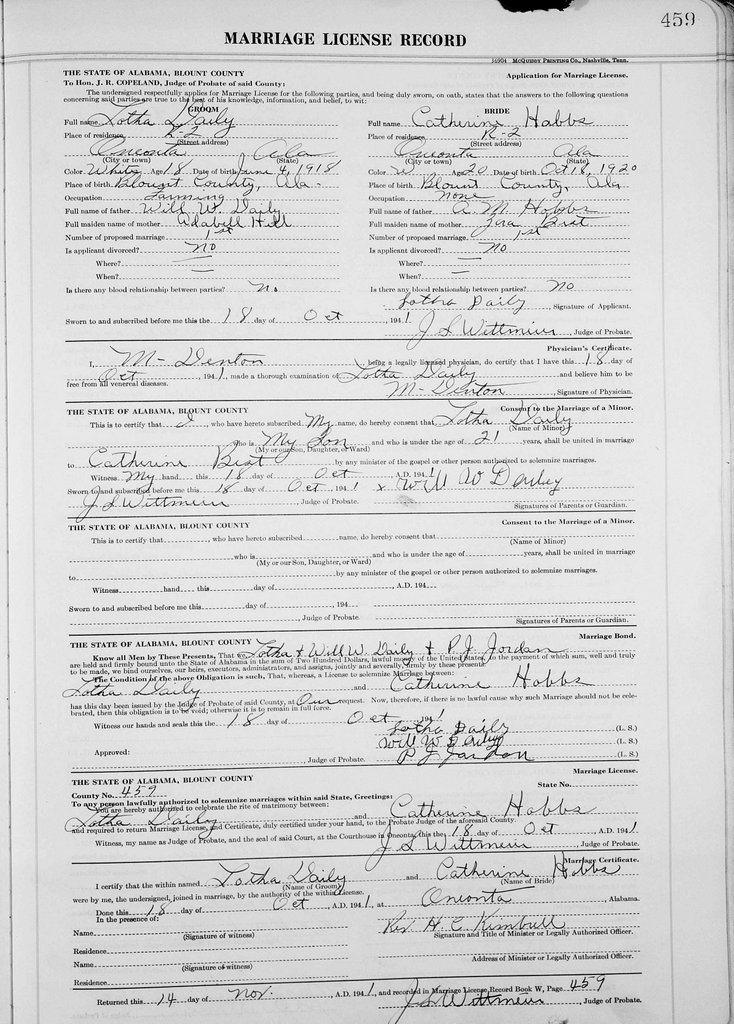 459
MARRIAGE LICENSE RECORD
36904 McQUIDDY PRINTING Co., Nashville, Tenn.
THE STATE OF ALABAMA, BLOUNT COUNTY Application for Marriage License.
To Hon. J. R. COPELAND, Judge of Probate of said County:
The undersigned respectfully applies for Marriage License for the following parties, and being duly sworn, on oath, states that the answers to the following questions
concerning said parties are true to the best of his knowledge, information, and belief, to wit:
GROOM
Full name Lotha Daily
Place of residence R-2
(Street address)
Oneonta Ala
(City or town) (State)
Color White Age 18 Date of birth June 4, 1918
Place of birth Blount County, Ala.
Occupation Farming
Full name of father Will W. Daily
Full maiden name of mother Adabell Hill
Number of proposed marriage 1st
Is applicant divorced? No
Where?
When?
Is there any blood relationship between parties? No
BRIDE
Full name Catherine Hobbs
Place of residence R-2
(Street address)
Oneonta Ala
(City or town) (State)
Color W Age 20 Date of birth Oct 18, 1920
Place of birth Blount County, Ala.
Occupation None
Full name of father A. M. Hobbs
Full maiden name of mother Bist
Number of proposed marriage 1st
Is applicant divorced? No
Where?
When?
Is there any blood relationship between parties? No
Lotha Daily, Signature of Applicant.
Sworn to and subscribed before me this the 18 day of Oct, 1941
J L Wittmeier, Judge of Probate.
Physician's Certificate.
I, M- Denton being a legally licensed physician, do certify that I have this 18 day of
Oct, 1941, made a thorough examination of Lotha Daily and believe him to be
free from all venereal diseases. M- Denton, Signature of Physician.
THE STATE OF ALABAMA, BLOUNT COUNTY Consent to the Marriage of a Minor.
This is to certify that I, who have hereto subscribed My name, do hereby consent that Lotha Daily
(Name of Minor)
who is My Son and who is under the age of 21 years, shall be united in marriage
(My or our Son, Daughter, or Ward)
to Catherine Bist by any minister of the gospel or other person authorized to solemnize marriages.
Witness My hand this 18 day of Oct, A.D. 1941
Sworn to and subscribed before me this 18 day of Oct, 1941 x Will W Dailey
J L Wittmeier, Judge of Probate. Signatures of Parents or Guardian.
THE STATE OF ALABAMA, BLOUNT COUNTY Consent to the Marriage of a Minor.
This is to certify that, who have hereto subscribed name, do hereby consent that
(Name of Minor)
who is and who is under the age of years, shall be united in marriage
(My or our Son, Daughter, or Ward)
to by any minister of the gospel or other person authorized to solemnize marriages.
Witness hand this day of, A.D. 194
Sworn to and subscribed before me this day of, 194
, Judge of Probate. Signatures of Parents or Guardian.
THE STATE OF ALABAMA, BLOUNT COUNTY Marriage Bond.
Know all Men by These Presents, That we, Lotha & Will W. Daily & P. J. Jordan
are held and firmly bound unto the State of Alabama in the sum of Two Hundred Dollars, lawful money of the United States, to the payment of which sum, well and truly
to be made, we bind ourselves, our heirs, executors, administrators, and assigns, jointly and severally, firmly by these presents.
The Condition of the above Obligation is such, That, whereas, a License to solemnize Marriage between:
Lotha Daily and Catherine Hobbs
has this day been issued by the Judge of Probate of said County, at Our request. Now, therefore, if there is no lawful cause why such Marriage should not be cele-
brated, then this obligation is to be void; otherwise it is to remain in full force.
Witness our hands and seals this the 18 day of Oct, 1941
Lotha Daily (L. S.)
Will W Dailey (L. S.)
Approved:, Judge of Probate. P J Jordon (L. S.)
THE STATE OF ALABAMA, BLOUNT COUNTY Marriage License.
County No. 459 State No.
To any person lawfully authorized to solemnize marriages within said State, Greetings:
You are hereby authorized to celebrate the rite of matrimony between:
Lotha Daily and Catherine Hobbs
and required to return Marriage License, and Certificate, duly certified under your hand, to the Probate Judge of the aforesaid County.
Witness, my name as Judge of Probate, and the seal of said Court, at the Courthouse in Oneonta, this the 18 day of Oct, A.D. 1941
J L Wittmeier, Judge of Probate.
Marriage Certificate.
I certify that the within named Lotha Daily and Catherine Hobbs
(Name of Groom) (Name of Bride)
were by me, the undersigned, joined in marriage, by the authority of the within License.
Done this 18 day of Oct, A.D. 1941 at Oneonta, Alabama.
In the presence of:
Rev H. C. Kimbrell
Name
(Signature of witness) Signature and Title of Minister or Legally Authorized Officer.
Residence
Name Address of Minister or Legally Authorized Officer.
(Signature of witness)
Residence
Returned this 14 day of Nov., A.D. 1941, and recorded in Marriage License Record Book W, Page 459
J L Wittmeier, Judge of Probate.